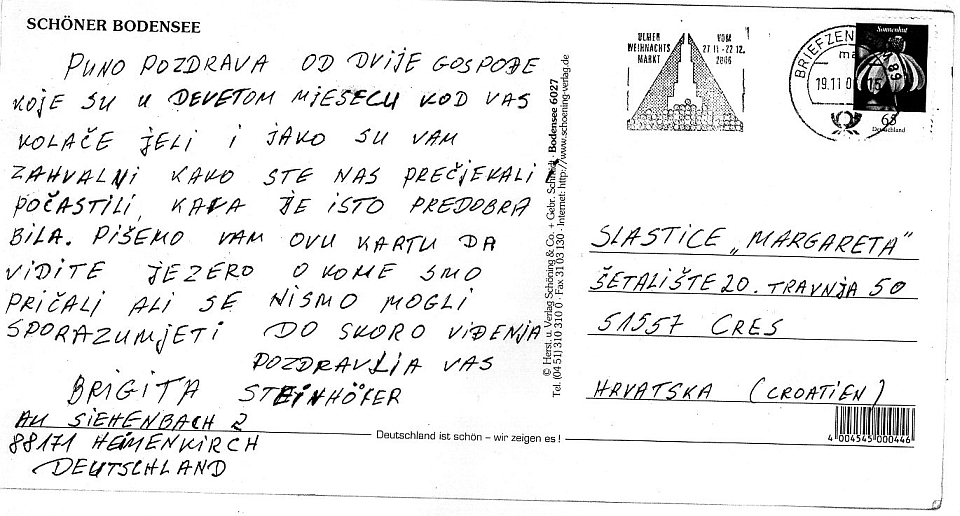 SCHÖNER BODENSEE
PUNO POZDRAVA OD DVIJE GOSPOĐE
KOJE SU U DEVETOM MJESECU KOD VAS
KOLAČE JELI I JAKO SU VAM
ZAHVALNI KAKO STE NAS PREČJEKALI I
POČASTILI, KAVA JE ISTO PREDOBRA
BILA. PIŠEMO VAM OVU KARTU DA
VIDITE JEZERO O KOME SMO
PRIČALI ALI SE NISMO MOGLI
SPORAZUMJETI DO SKORO VIĐENJA
POZDRAVLJA VAS
BRIGITA STEINHÖFER
AM SIEHENBACH 2
88171 HEIMENKIRCH
DEUTSCHLAND
Deutschland ist schön – wir zeigen es!
© Herst. u. Verlag Schöning & Co. + Gebr. Schmidt · Bodensee 6027
Tel. (04 51) 310 310 0 · Fax 31 03 130 · Internet: http://www.schoening-verlag.de
ULMER VOM
WEIHNACHTS 27.11.-22.12.
MARKT 2006
BRIEFZEN
19.11.0
89
Sonnenhut
65
Deutschland
SLASTICE „MARGARETA"
ŠETALIŠTE 20. TRAVNJA 50
51557 CRES
HRVATSKA (CROATIEN)
4 004545 000446